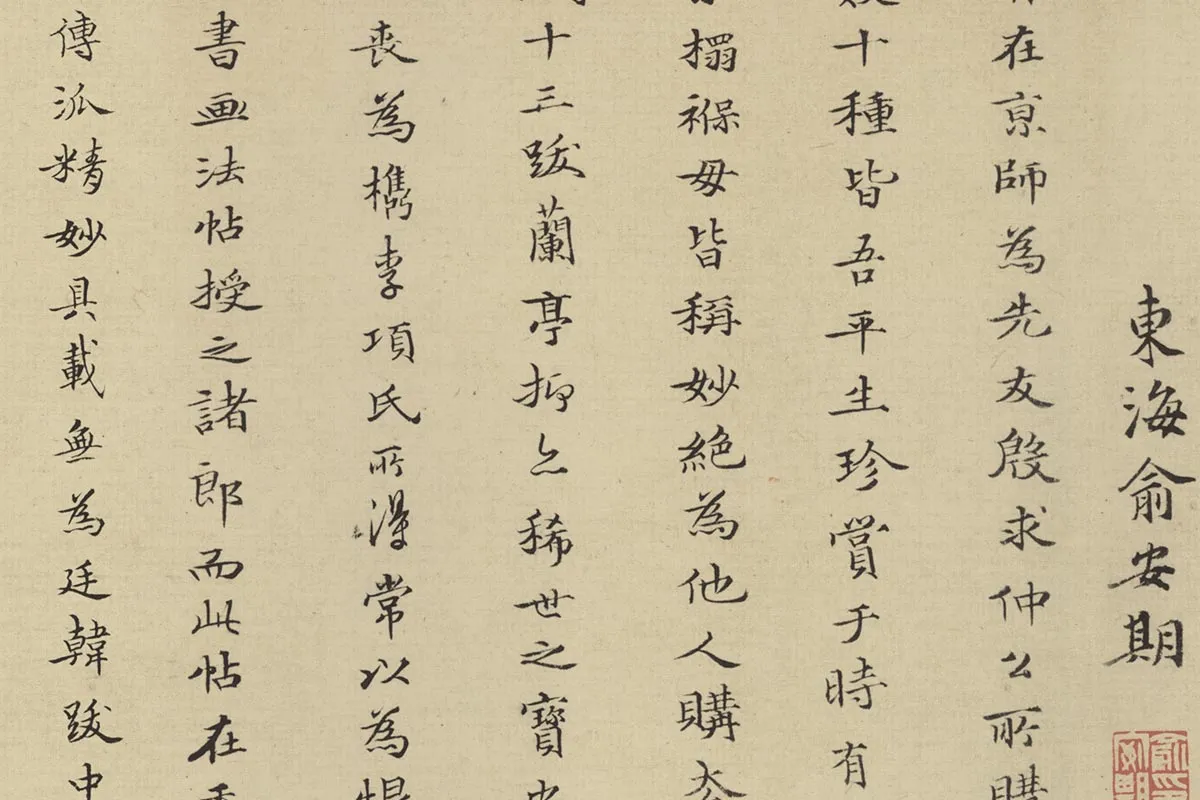 東海俞安期
在京師為先友殷求仲公所購
十種皆吾平生珍賞于時有
榻褓毋皆稱妙絕為他人購去
十三跋蘭亭抑亦稀世之寶也
喪為檇李項氏所得常以為恨
書画法帖授之諸郎而此帖在
傳派精妙具載無為廷韓跋中